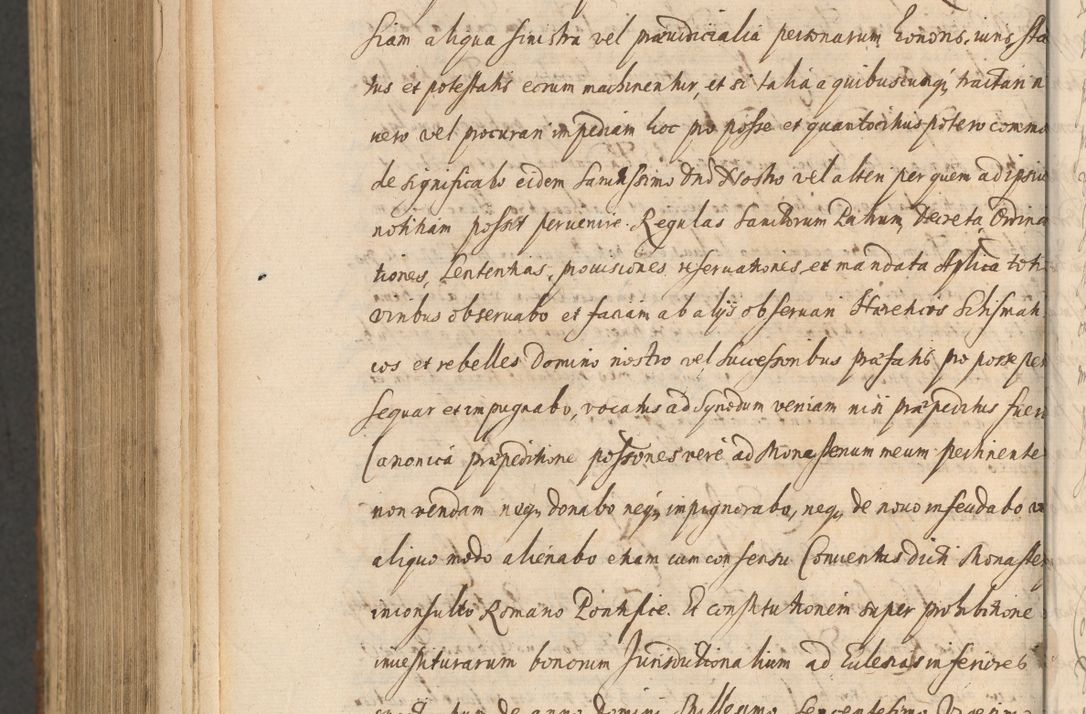 siam aliqua sinistra vel præiudicialia personarum, honoris, iuris, sta
tus et potestatis eorum machinentur, et si talia a quibuscunq; tractari n
vero vel procurari impediam hoc pro posse et quantocihus potero commo
de significabo eidem Sanctissimo Dno Nostro vel alteri per quem ad ipsiu
notitiam possit peruenire. Regulas Sanctorum Patrum, Decreta, Ordina
tiones, Sententias, prouisiones, reseruationes, et mandata Aplica toti
viribus obseruabo et faciam ab alijs obseruari Hæreticos Schismati
cos et rebelles Domino nostro vel Successoribus præfatis pro posse per
sequar et impugnabo, vocatus ad Synodum veniam nisi præpeditus fuer
Canonicâ præpeditione possones verè ad Monasterium meum pertinente
non vendam neq; donabo neq; impignorabo, neq; de novo infeudabo v
aliquo modo alienabo etiam cum consensu Conuentus dicti Monaster
inconsulto Romano Pontifice. Et constitutionem super prohibitione
inuestiturarum bonorum Jurisdictionalium ad Eclesias inferiores
de anno Domini Millesimo Sexcentesimo Vigesimo